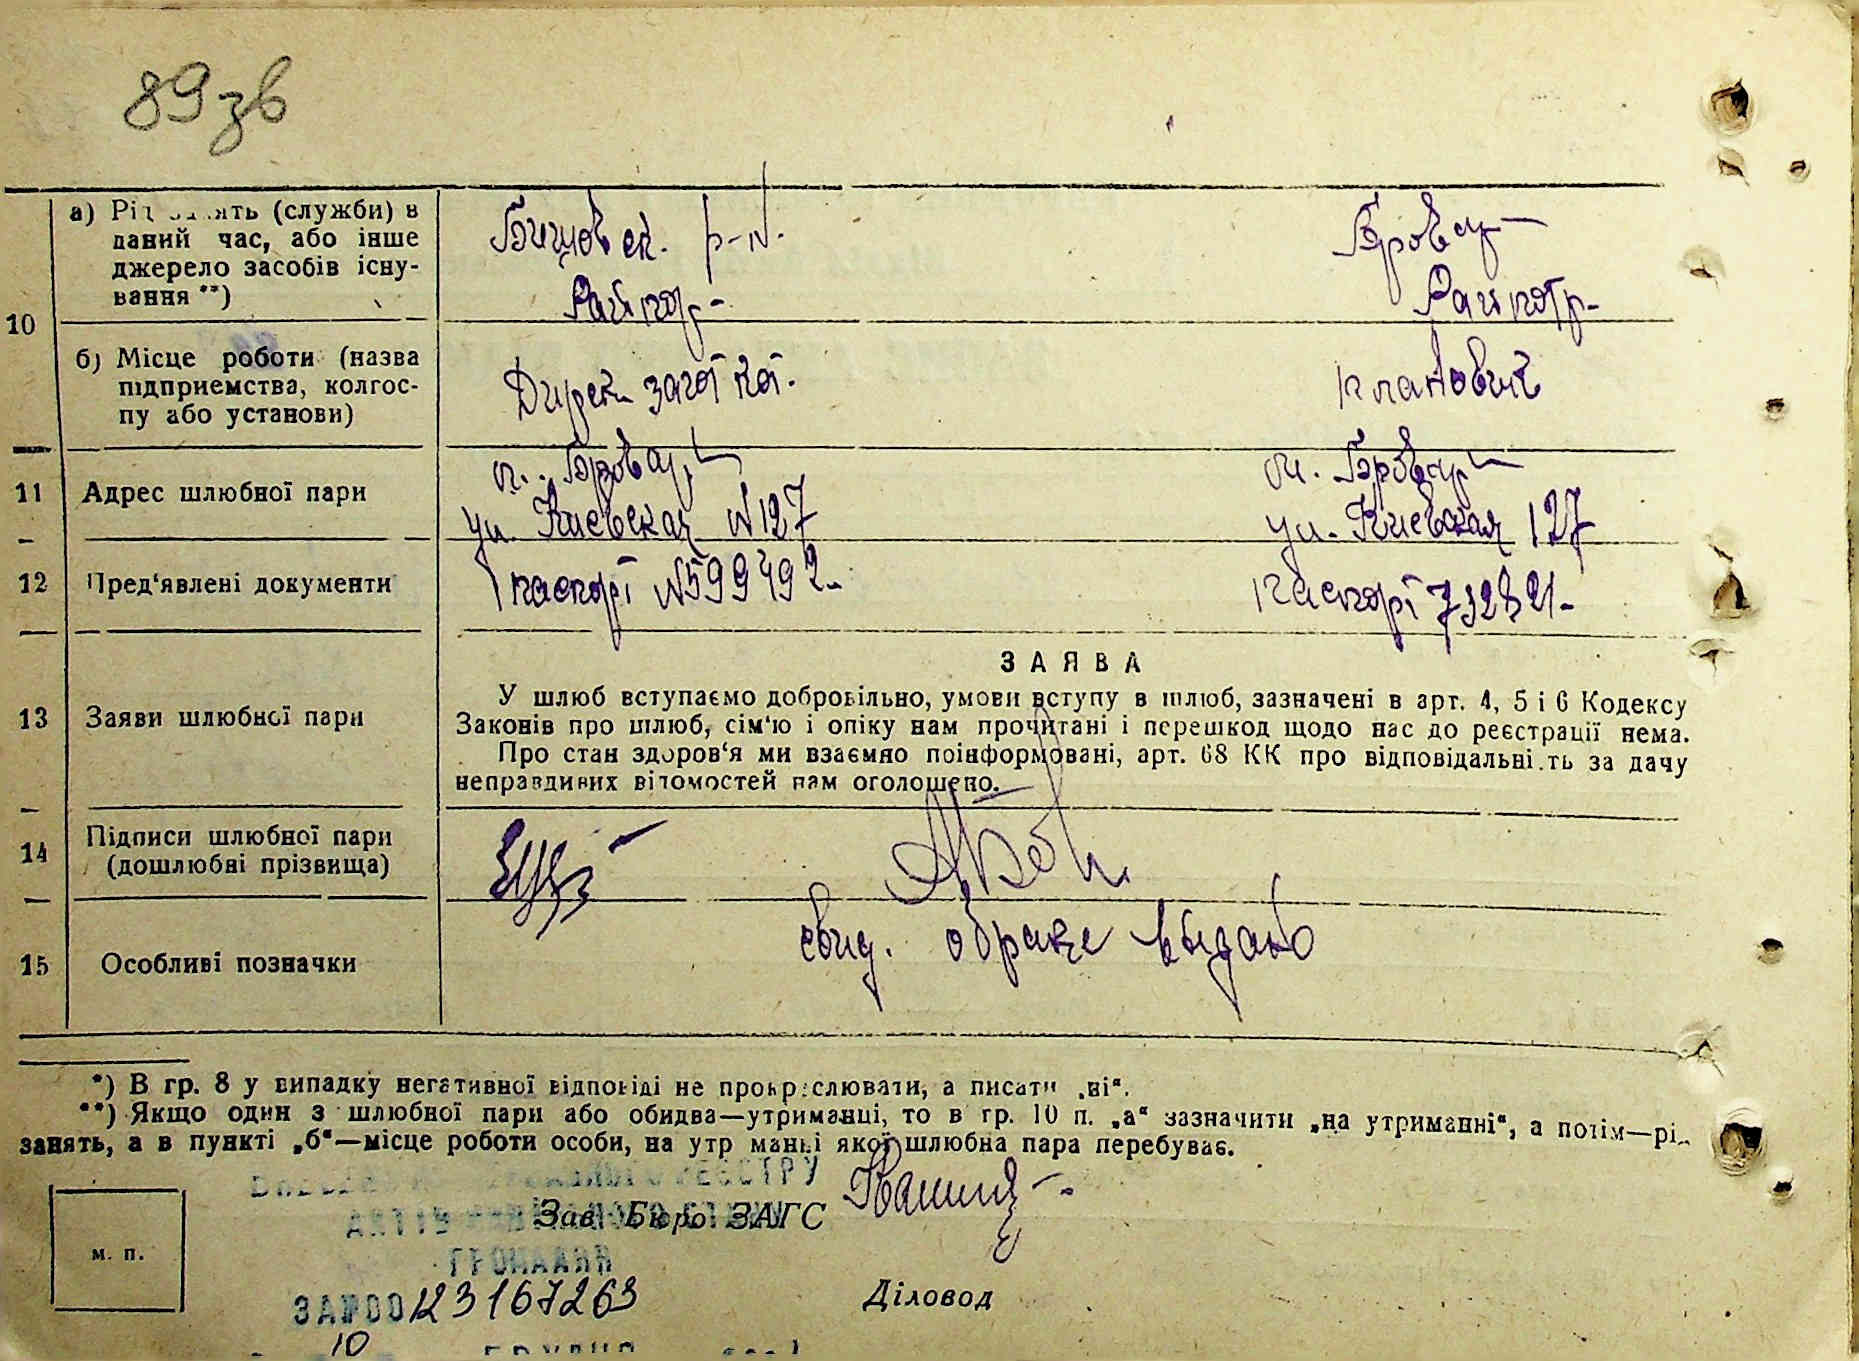 89 зв
а) Рід занять (служби) в
даний час, або інше
джерело засобів існу-
вання **)
р-н.
Бровар
Райпотр-
10
б) Місце роботи (назва
підприємства, колгос-
пу або установи)
Дирек загот
плановик
11 Адрес шлюбної пари
м. Бровары
ул. Киевская N 127
м. Бровары
ул. Киевская 127
12 Пред'явлені документи
паспорт N 599492
паспорт 732821
13 Заяви шлюбної пари
ЗАЯВА
У шлюб вступаємо добровільно, умови вступу в шлюб, зазначені в арт. 4, 5 і 6 Кодексу
Законів про шлюб, сім'ю і опіку нам прочитані і перешкод щодо нас до реєстрації нема.
Про стан здоров'я ми взаємно поінформовані, арт. 68 КК про відповідальність за дачу
неправдивих відомостей нам оголошено.
14 Підписи шлюбної пари
(дошлюбні прізвища)
15 Особливі позначки
свид. о браке выдано
*) В гр. 8 у випадку негативної відповіді не прокреслювати, а писати „ні“.
**) Якщо один з шлюбної пари або обидва—утриманці, то в гр. 10 п. „а“ зазначити „на утриманні“, а потім—рід
занять, а в пункті „б“—місце роботи особи, на утриманні якої шлюбна пара перебуває.
РЕЄСТРУ
Зав. Бюро ЗАГС
м. п.
ГРОМАДЯН
ЗА №00123167263
Діловод
10